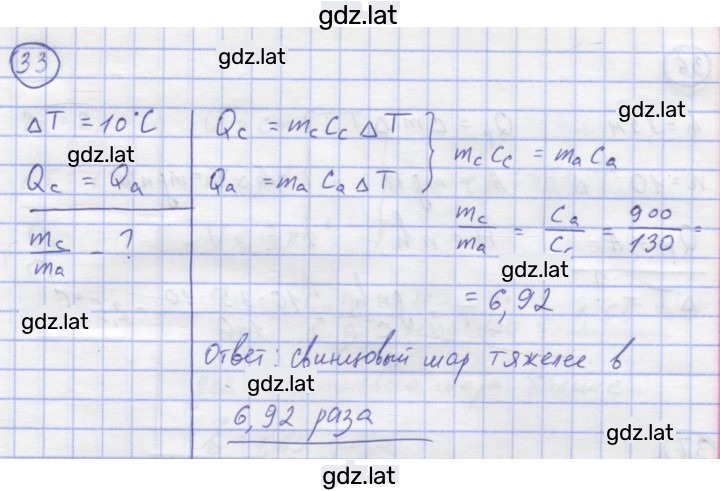 gdz.lat
33
gdz.lat
ΔT = 10°C
gdz.lat
Qc = Qa
mc/ma - ?
gdz.lat
Qc = mc Cc ΔT
Qa = ma Ca ΔT
gdz.lat
mc Cc = ma Ca
mc/ma = Ca/Cc = 900/130 =
gdz.lat
= 6,92
Ответ: свинцовый шар тяжелее в
gdz.lat
6,92 раза
gdz.lat
gdz.lat